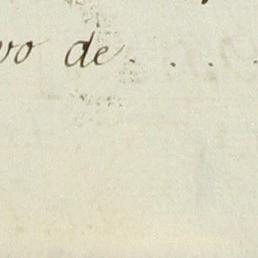 vo de . . . .